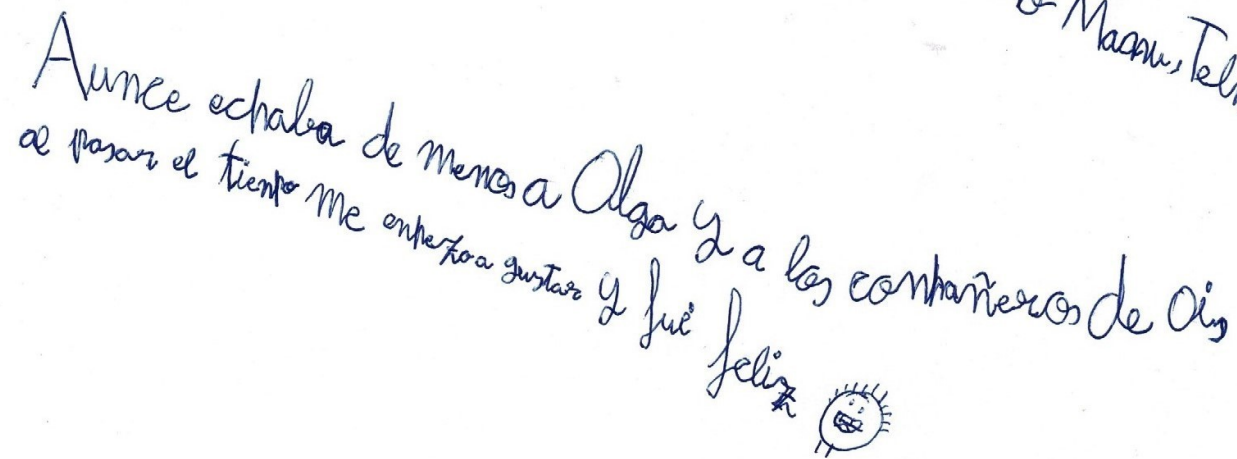 Manu, Tel
Aunce echaba de menos a Olga y a los conpañeros de Ois
al pasar el tienpo me enpezo a gustar y fué feliz